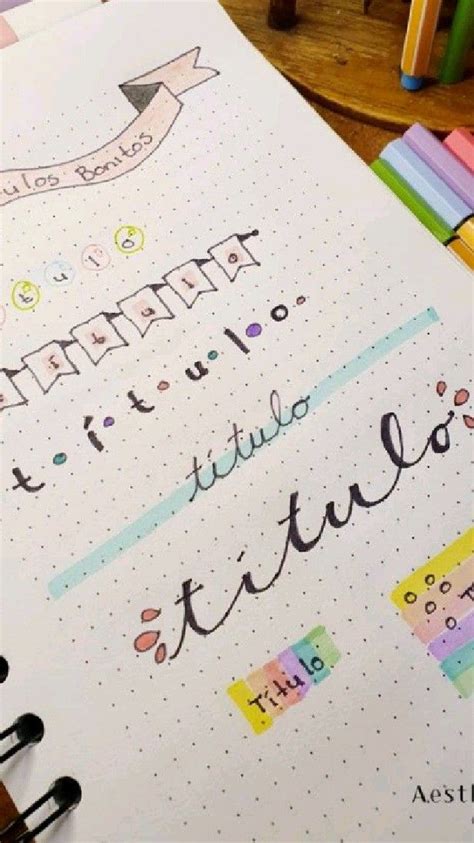 ulos Bonitos
t u l o
í t u l o
t. í. t. u. l. o.
título
título
Título
T
Aest